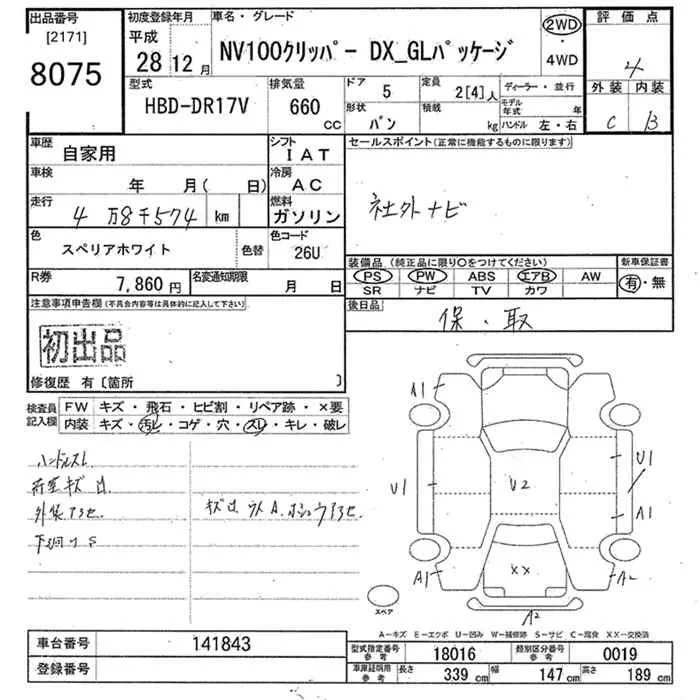 出品番号
[2171]
8075
初度登録年月
平成
28 12月
車名・グレード
NV100クリッパー DX_GLパッケージ
2WD
・
4WD
評価点
4
外装 内装
C B
型式
HBD-DR17V
排気量
660
CC
ドア
5
定員
2[4]人
ディーラー・並行
形状
バン
積載
kg
モデル年式
年
ハンドル 左・右
車歴
自家用
シフト
IAT
車検
年 月( 日)
冷房
AC
走行
4万8千574 km
燃料
ガソリン
色
スペリアホワイト
色替
色コード
26U
R券
7,860円
名変通知期限
月 日
セールスポイント(正常に機能するものに限ります)
社外ナビ
装備品 (純正品に限り○をつけてください)
PS PW ABS エアB AW
SR ナビ TV カワ
新車保証書
有・無
後日品
保・取
注意事項申告欄(不具合内容等は具体的に記入して下さい)
初出品
修復歴 有〔箇所 〕
検査員記入欄
FW キズ・飛石・ヒビ割・リペア跡・×要
内装 キズ・汚レ・コゲ・穴・スレ・キレ・破レ
ハンドルスレ
荷室キズ凹
キズ凹
下回りS
A1
U1
U1
A1
U2
XX
A1
A2
A2
スペア
A－キズ E－エクボ U－凹み W－補修跡 S－サビ C－腐食 XX－交換済
車台番号
141843
登録番号
型式指定番号
参考
18016
類別区分番号
参考
0019
車庫証明用
参考
長さ
339 cm
幅
147 cm
高さ
189 cm